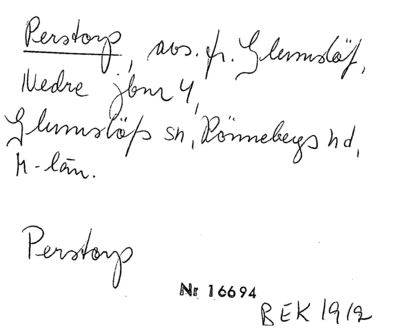 Perstorp, avs. fr. Glumslöf,
Nedre jbnr 4,
Glumslöfs sn, Rönnebergs hd,
M-län.
Perstorp
Nr 16694
BEK 1912